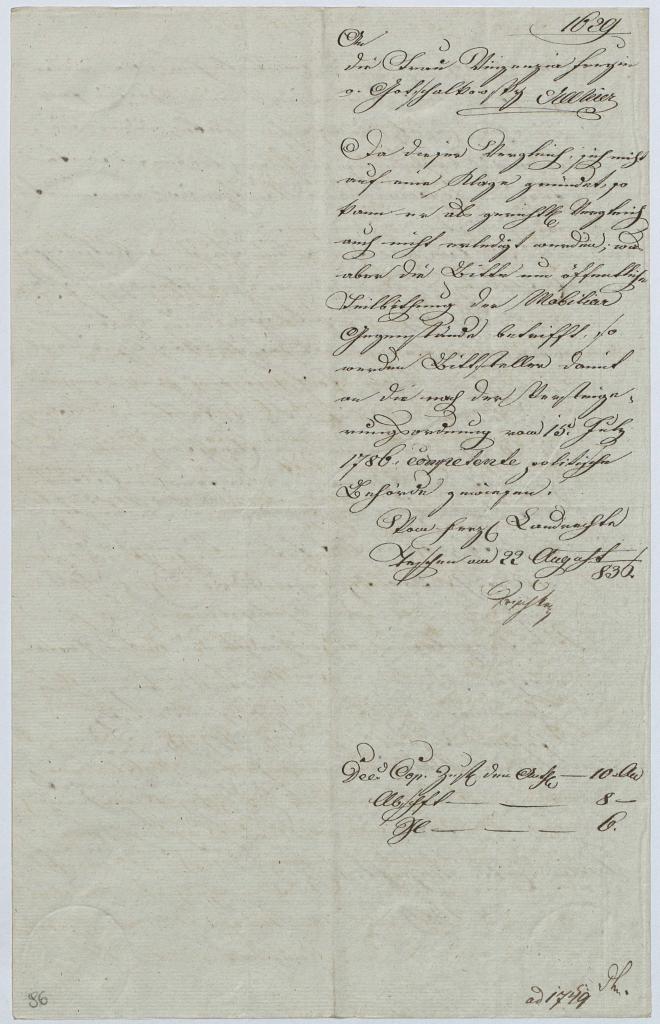 1629
An
die Frau Vinzenzia Freyin
v. Gotschalkowsky
Da dieser Vergleich sich nicht
auf eine Klage gründet, so
kann er als gerichtl. Vergleich
auch nicht erledigt werden; was
aber die Bitte um öffentliche
Feilbiethung der Mobiliar
Gegenstände betrifft, so
werden Bittsteller damit
an die nach der Versteige-
rungsordnung vom 15t July
1786. competente politische
Behörde gewiesen.
Vom herzl. Landrechte
Teschen am 22 August
836.
Cop. den 10
Abschft 8 —
6.
ad 1749
86